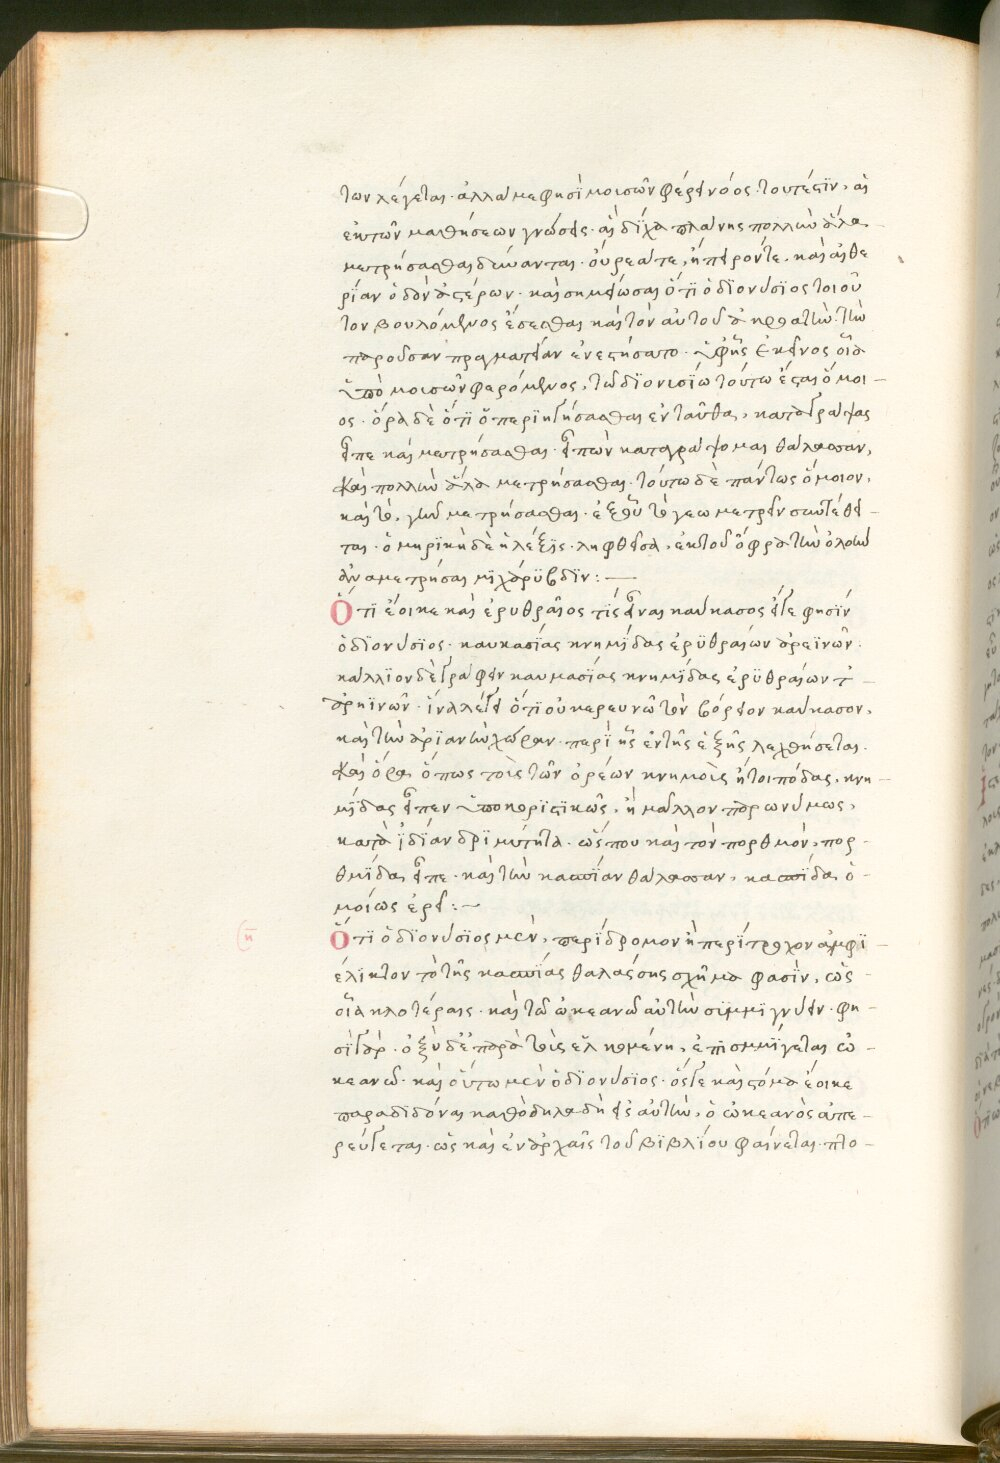 των λέγεται· ἀλλά με φησὶ μουσῶν φέρει νόος· τουτέστϊν, αἱ
ἐκ τῶν μαθήσεων γνώσεις· αἳ δίχα πλάνης πολλὴν ἅλα
μετρήσασθαι δύνανται· οὔρεά τε, ἤπειρόν τε, καὶ αἰθε
ρίαν ὁδὸν ἀστέρων· καὶ σημείωσαι ὅτϊ ὁ διονύσϊος τοιοῦ
τον βουλόμενος ἔσεσθαι καὶ τὸν αὐτοῦ ἀκροατὴν· τὴν
παροῦσαν πραγματείαν ἐνεστήσατο· ὑφ' ἧς ἐκεῖνος οἷα
ὑπὸ μουσῶν φερόμενος, τῶ διονισϊω τούτω ἔσται ὅμοι-
ος· ὅρα δὲ ὅτϊ ὃ περιηγήσασθαι ἐνταῦθα, καταγράψαι
εἶπε καὶ μετρήσασθαι· εἰπὼν καταγράψομαι θάλασσαν,
καὶ πολλὴν ἅλα μετρήσασθαι· τούτω δὲ πάντως ὅμοιον,
καὶ τὸ, γῆν μετρήσασθαι· ἐξ οὗ τὸ γεωμετρεῖν συντέθει-
ται· ὁμηρϊκὴ δὲ ἡ λέξϊς· ληφθεῖσα, ἐκ τοῦ ὄφρα τὴν ὀλοὴν
ἀναμετρήσαι μϊ χάρυβδϊν:—
Ὅτϊ ἔοικε καὶ ἐρυθραῖος τὶς εἶναι καύκασος εἴγε φησὶν
ὁ διονύσϊος· καυκασίας κνημῖδας ἐρυθραίων ὀρεϊνῶν·
κάλλιον δὲ γράφειν καυκασίας κνημῖδας ἐρυθραίων τ-
ἀρηϊνῶν· ἵνα λέγη ὅτϊ οὐκ ἐρευνῶ τὸν βόρειον καύκασον,
καὶ τὴν ἀριανὴν χώραν· περὶ ἧς ἐν τῆς ἑξῆς λεχθήσεται·
καὶ ὅρα ὅπως τοὶς τῶν ὀρέων κνημοὶς ἤτοι πόδας, κνη-
μῖδας εἶπεν ὑποκοριστϊκῶς, ἢ μᾶλλον παρωνύμως,
κατὰ ϊδίαν δρϊμύτητα· ὥς που καὶ τὸν πορθμὸν, πορ-
θμίδα εἶπε· καὶ τὴν κασπίαν θάλασσαν, κασπίδα ὁ-
μοίως ἐρεῖ:—
Ὅτϊ ὁ διονύσϊος μὲν, περίδρομον ἢ περίτροχον ἀμφϊ-
έλικτον τὸ τῆς κασπίας θαλάσσης σχῆμα φασὶν, ὡς-
οἷα κλοτέραις· καὶ τῶ ὠκεανῶ αὐτὴν σϊμμϊγνύειν· φη-
σὶ γάρ· ὀξὺ δὲ παρὰ τοὶς ἑλκομένη, ἐπϊσμμίγεται ὠ-
κεανῶ· καὶ οὕτω μὲν ὁ διονύσϊος· ὅς γε καὶ στόμα ἔοικε
παραδϊδόναι καθὸ δηλαδὴ εἰς αὐτὴν, ὁ ὠκεανὸς ἀπε-
ρεύγεται· ὡς καὶ ἐν ἀρχαῖς τοῦ βϊβλίου φαίνεται· πτο-
(η